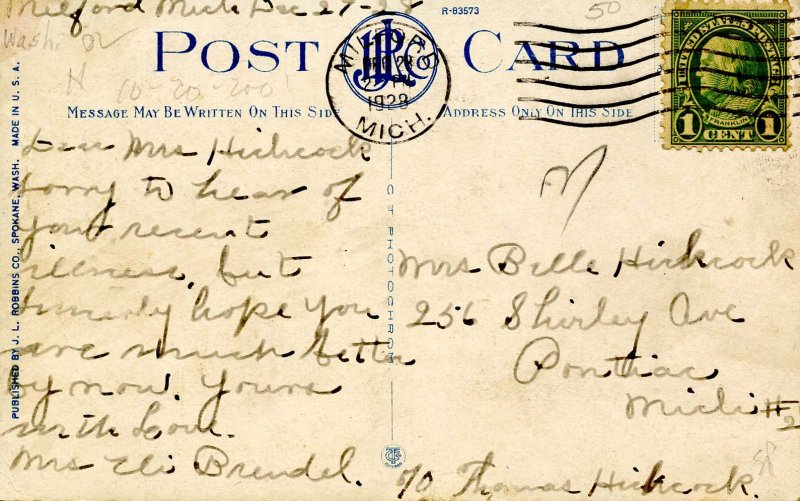 Milford Mich Dec 27-28
R-83573
50
Wash.
POST CARD
JLRCo
MILFORD
DEC 28
PM
1928
MICH.
UNITED STATES POSTAGE
FRANKLIN
1 CENT 1
10-20-200
MESSAGE MAY BE WRITTEN ON THIS SIDE
ADDRESS ONLY ON THIS SIDE
PUBLISHED BY J. L. ROBBINS CO., SPOKANE, WASH. MADE IN U. S. A.
CT PHOTOCHROM
Dear Mrs Hickcock
Sorry to hear of
your recent
illness, but
sincerely hope you
are much better
by now. Yours
with Love.
Mrs Eli Brendel.
Mrs Belle Hickcock
256 Shirley Ave
Pontiac
Mich
c/o Thomas Hickcock.